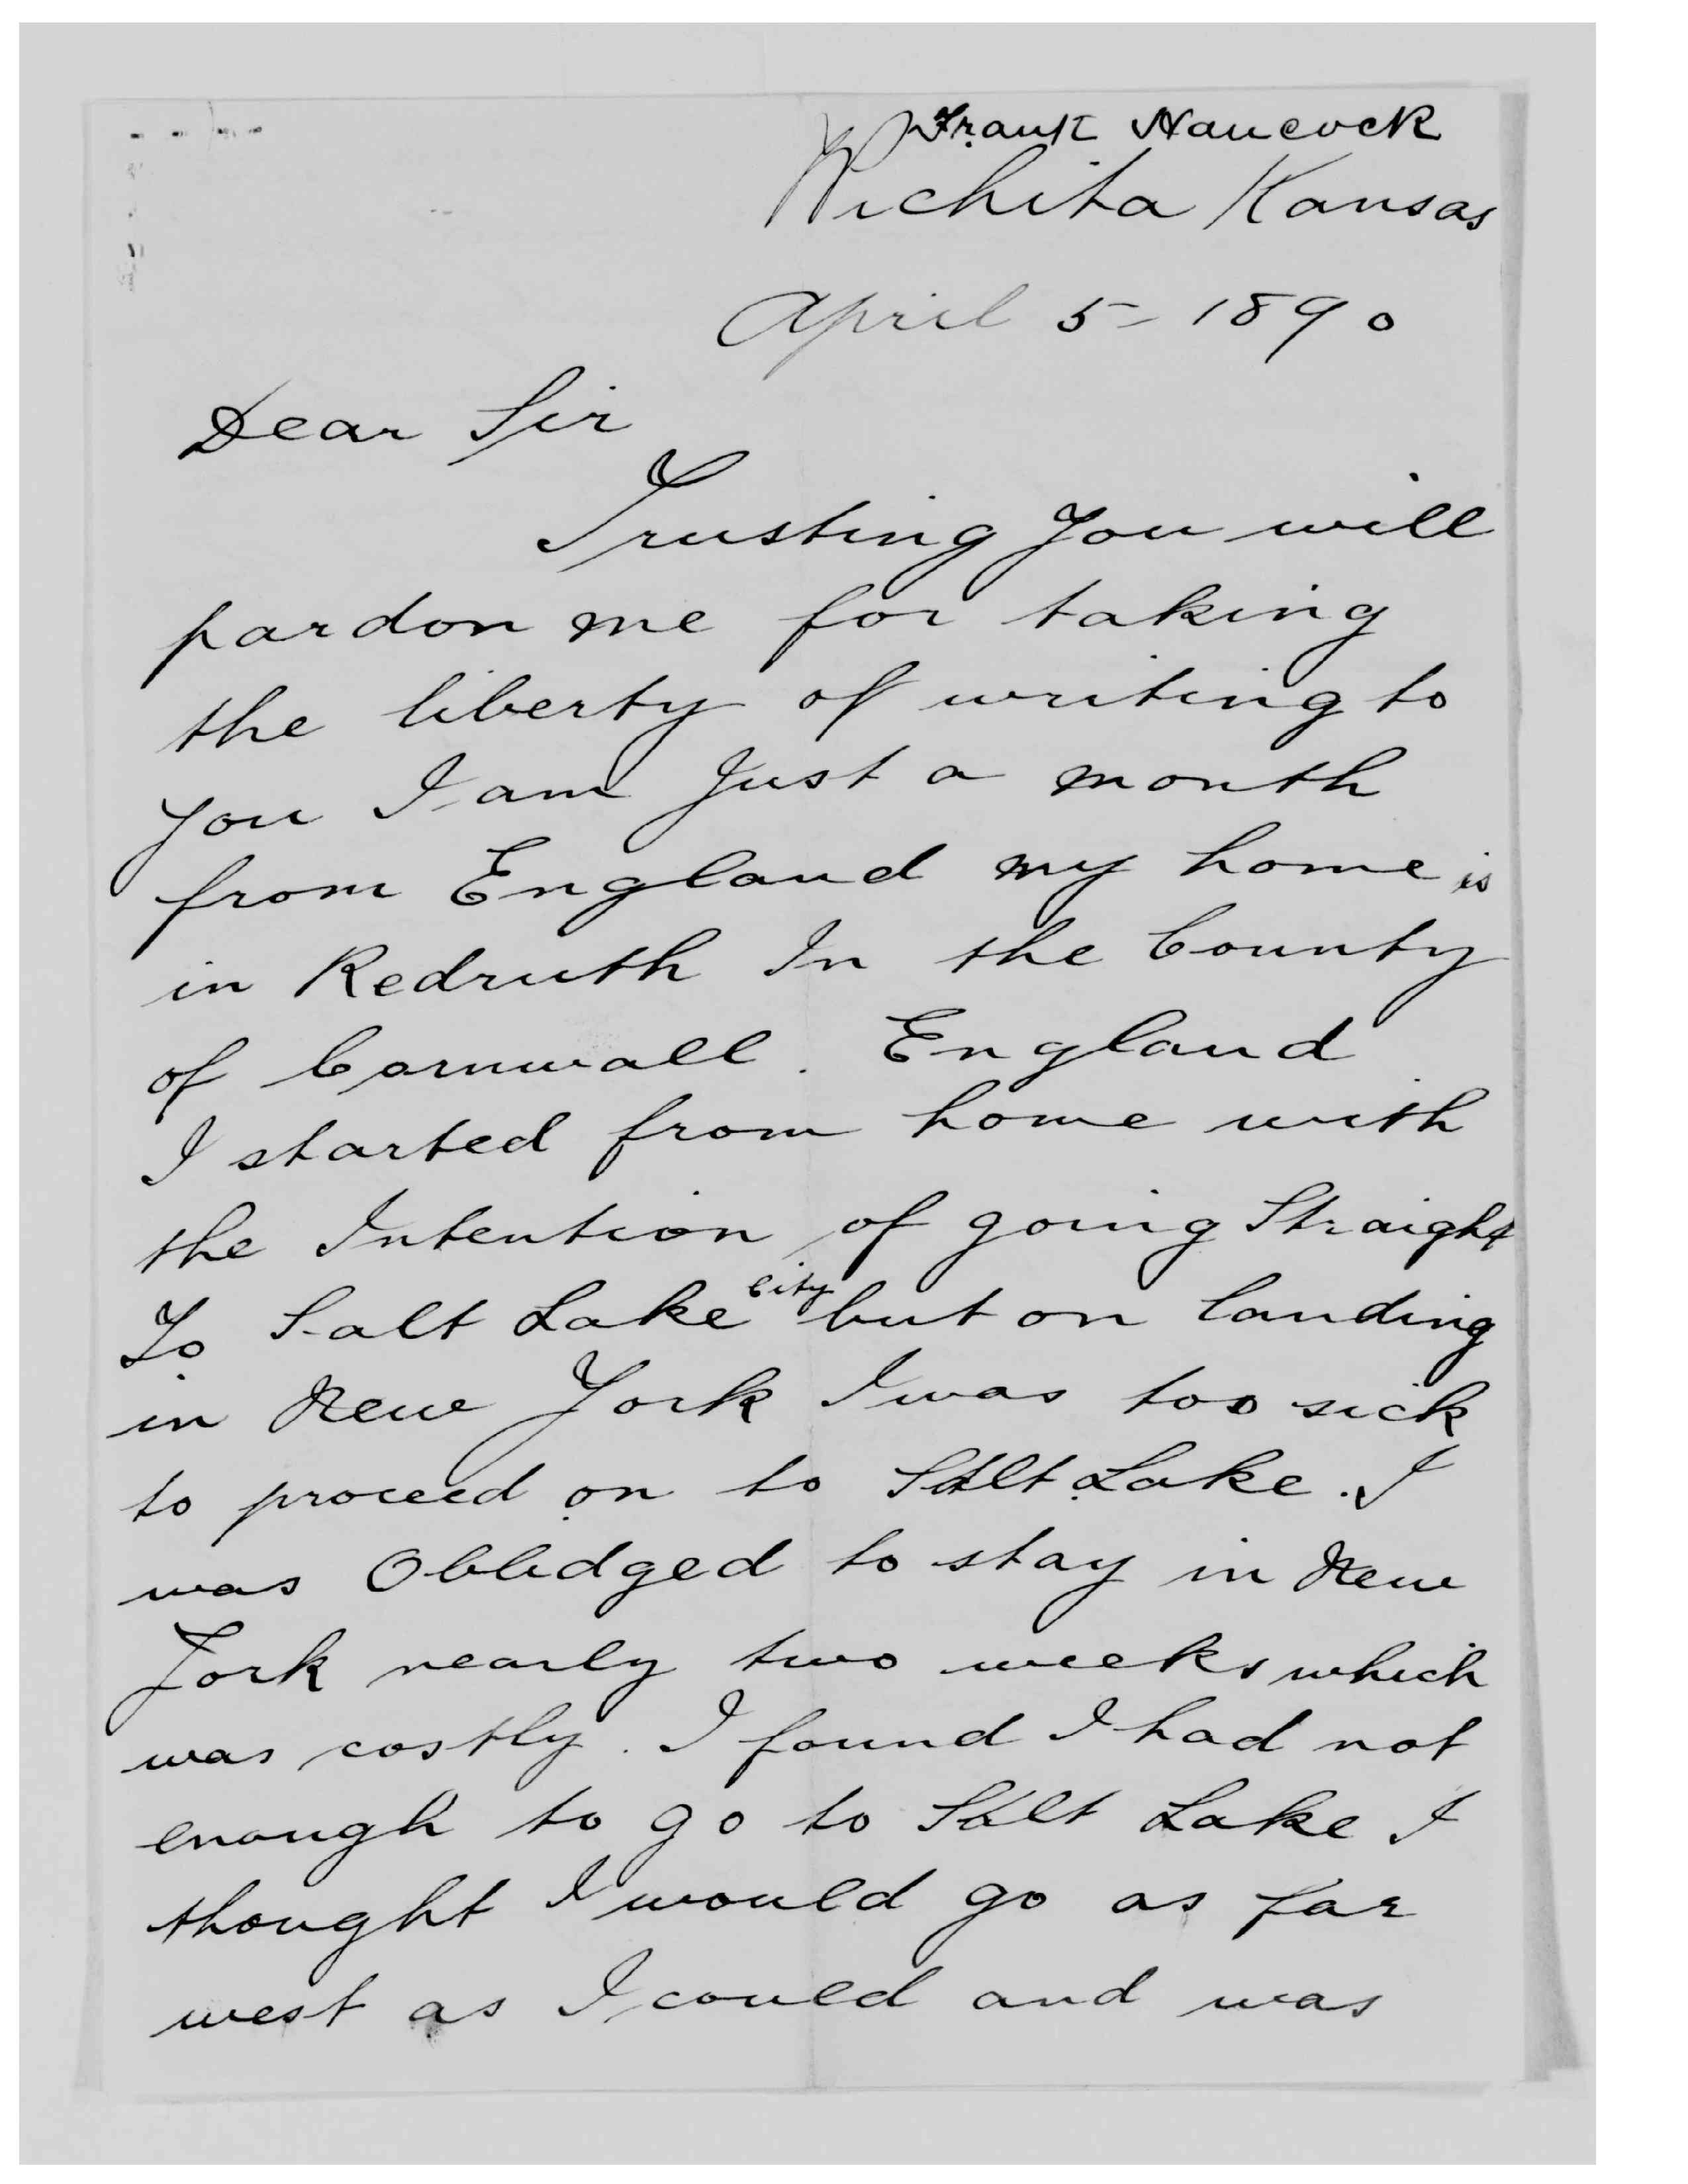 Frank Hancock
Wichita Kansas
April 5 - 1890
Dear Sir
Trusting You will
pardon me for taking
the liberty of writing to
you I am Just a month
from England my home is
in Redruth In the County
of Cornwall. England
I started from home with
the Intention of going Straight
To Salt Lake City but on landing
in New York I was too sick
to proceed on to Salt Lake. I
was Oblidged to stay in New
York nearly two weeks which
was costly. I found I had not
enough to go to Salt Lake I
thought I would go as far
west as I could and was